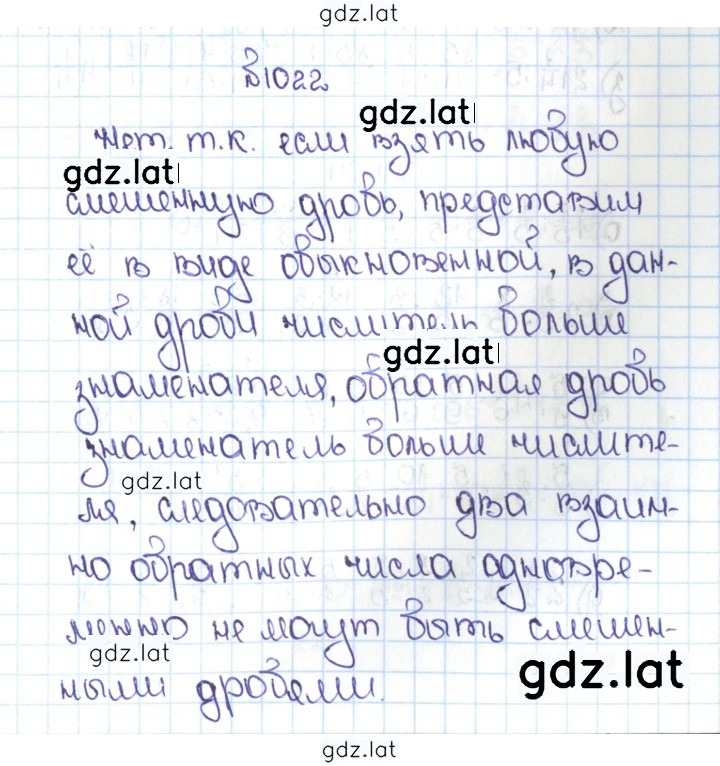 gdz.lat
№1022
gdz.lat
Нет. т.к. если взять любую
gdz.lat
смешенную дробь, представим
её в виде обыкновенной, в дан-
ной дроби числитель больше
gdz.lat
знаменателя, обратная дробь
знаменатель больше числите-
gdz.lat
ля, следовательно два взаим-
но обратных числа одновре-
менно не могут быть смешен-
gdz.lat
ными дробями.
gdz.lat
gdz.lat